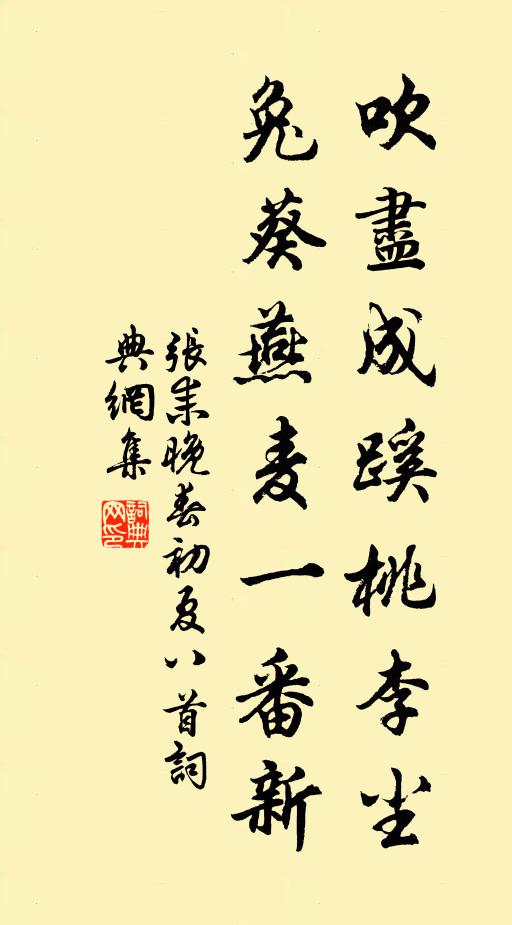 吹盡成蹊桃李尘
兔葵燕麦一番新
張耒晚春初夏八首詞
典網集
詞典
网印